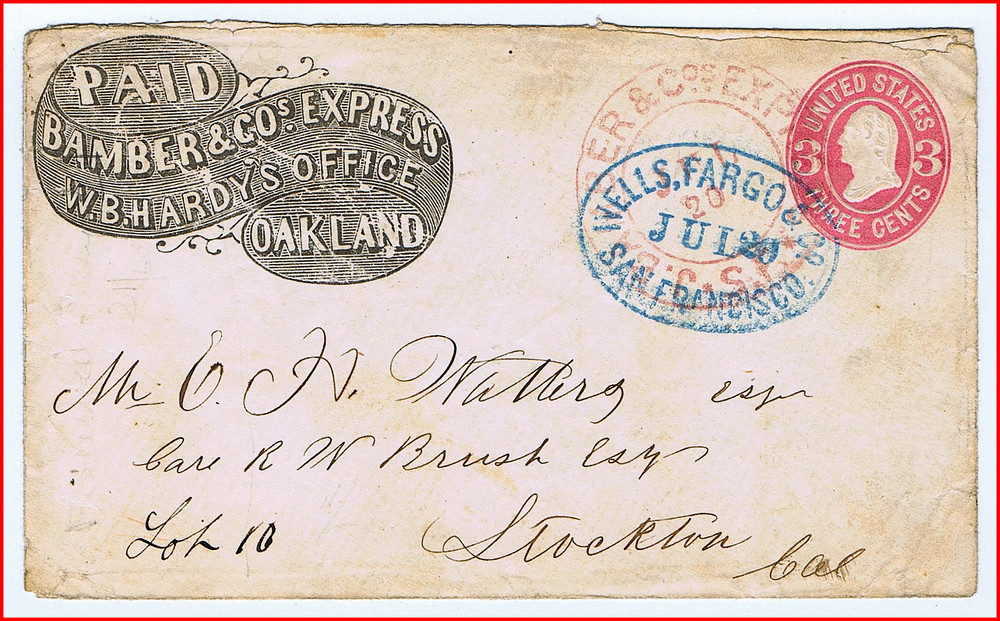 PAID
BAMBER & COS. EXPRESS
W.B. HARDY'S OFFICE
OAKLAND
ER & COS EXPR
20
WELLS, FARGO & CO.
JUL 20
SAN FRANCISCO.
UNITED STATES
3 3
THREE CENTS
Mr E. H. Watters esqr
Care R W Brush Esq
Stockton
Cal